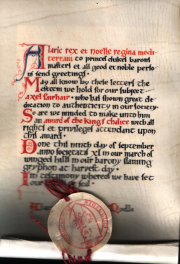 Alaric rex et noelle regina medi-
terran to princes dukes barons
masters et all good et noble persons
send greetings.
Know ye all by these letters the
esteem we hold for our subject
axel farhar who has shown great de-
dication to authenticity in our society
So are we minded to make unto him
an award of the king's chalice with all
rights et privileges attendant upon
this award.
Done this ninth day of september
anno societatis xi in our march of
winged hills in our barony flaming
gryphon at harvest day.
In testimony whereof we have set
our seal